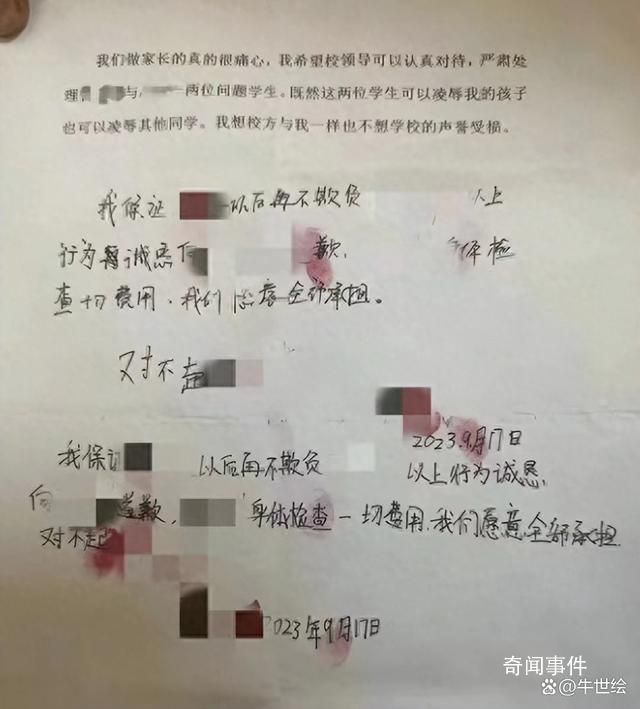 我们做家长的真的很痛心，我希望校领导可以认真对待，严肃处
理 与 两位问题学生。既然这两位学生可以凌辱我的孩子
也可以凌辱其他同学。我想校方与我一样也不想学校的声誉受损。
我保证 以后再不欺负 上
行为 诚恳 歉， 体检
查一切费用，我们愿意全部承担。
对不起
2023.9月17日
我保证 以后再不欺负 以上行为诚恳
向 道歉， 身体检查一切费用，我们愿意全部承担
对不起
2023年9月17日
奇闻事件
牛世绘